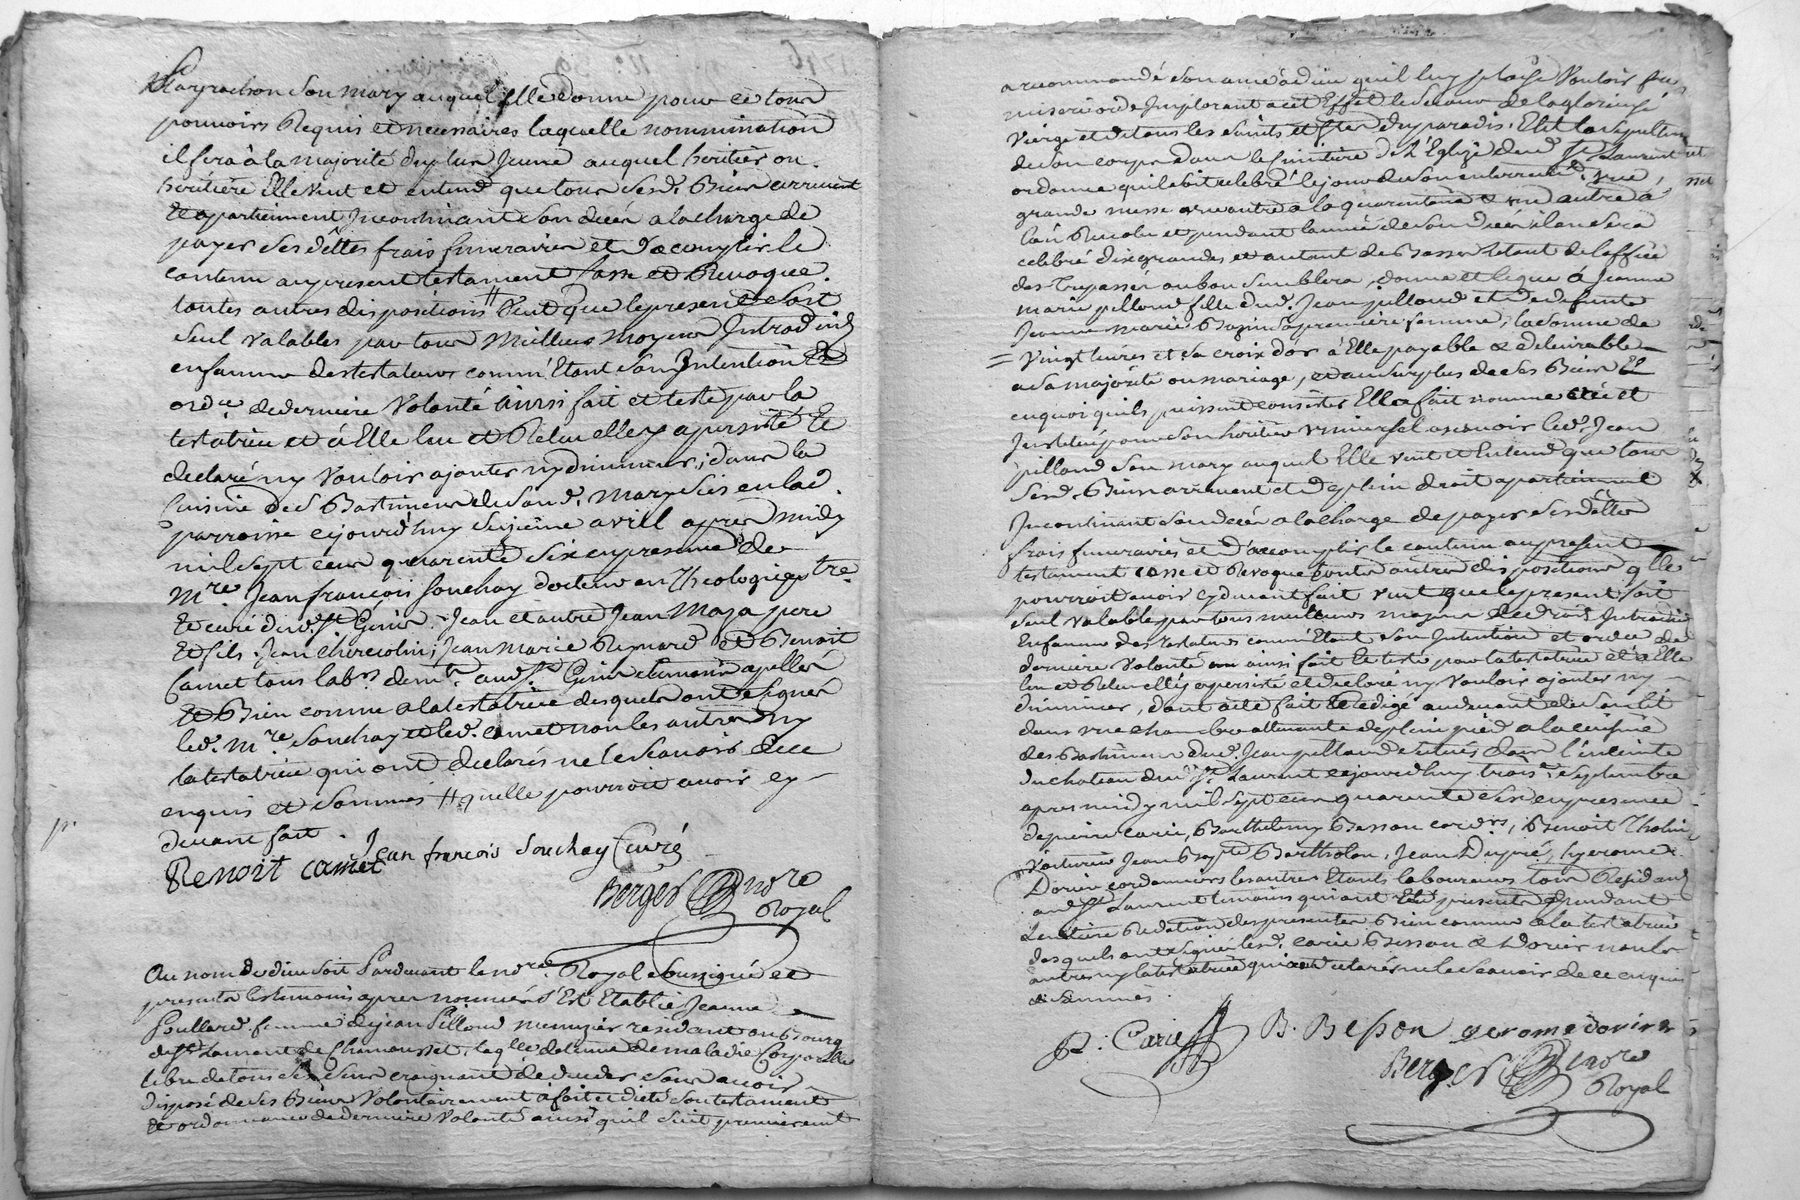 Layrachon Son Mary auquel Elle donne pour ce tous
pouvoirs Requis et necessaires laquelle nommination
il fera à la majorité du plus Jeune auquel heritier ou
heritière Elle veut et entend que tous sesd. Biens arrivent
Et apartiennent Incontinant Son decés a la charge de
payer Ses dêttes frais funeraires et d'accomplir le
contenu au present testament Casse et Revoque
toutes autres dispositions # Veut que le present Soit
Seul valables par tous Meilleurs moyens Introduits
en faveur des testateurs comm'Etant Son Intention Et
ord.ce de derniere Volonté Ainsi fait et testé par la
testatrice et à Elle lu et Relu elle y a persisté Et
declaré ny Vouloir ajouter ny diminuer; dans la
Cuisine des Bastiments de Sond. Mary Sis en lad.
parroisse cejourd'huy Seizieme avril apres midy
mil sept cens quarente Six en presence de
M.re Jean françois Souchay docteur en Theologie p.tre
Et curé dud. S.t Genis. Jean et autre Jean Maza pere
Et fils. Jean Chirecolin, Jean Marie Reynard et Benoit
Camet tous lab.rs dem.t aud. S.t Genis temoins apellés
Et Bien comme a la testatrice desquels ont Signés
led. M.re Souchay et led. camet non les autres ny
la testatrice qui ont declarés ne le Scavoir de ce
enquis et Sommés # quelle pourroit avoir cy
devant fait.
Benoit camet Jean françois Souchay Curé
Berger nore
Royal
Au nom de dieu Soit Pardevant le no.re Royal Soussigné et
presents les temoins apres nommés S'Est Etablie Jeanne
Poullard femme de jean Pilloud menuzier residant au Bourg
de S.t Laurent de Chamousset, laq.lle detenue de maladie Corporelle
libre de tous Ses Sens craignant de deceder Sans avoir
disposé de Ses Biens Volontairement à fait et dicté Son testament
Et ordonnance de derniere Volonté ainsi quil Suit premierement
a recommandé Son ame à dieu quil luy plaise Vouloir faire
misericorde Implorant a cet Effet le Secour de la glorieuse
Vierge et de tous les Saints et Stes du paradis. Elit la Sepulture
de Son corps dans le Cimitiere de L'Eglize dud. S.t Laurent et
ordonne quil soit celebré le jour de Son enterrement une
grande messe une autre a la quarantaine & une autre à
l'an Revolu et pendant l'année de Son decés il en Sera
celebré dix grandes et autant de Basses Tétant de l'office
des Trepassés ou bon Semblera, donne et legue à Jeanne
marie pilloud fille dud. Jean pilloud et de defunte
Jeanne Marie Bazin Sa premiere femme, la Somme de
= Vingt livres et Sa croix d'or à Elle payable & delivrable
a Sa majorité ou mariage, et au Surplus de Ses Biens Et
en quoi quils puissent consister Elle a fait nommé créé et
Institué pour Son heritier universel a scavoir led. Jean
pilloud Son mary auquel Elle veut et Entend que tous
Sesd. Biens arrivent et de plein droit apartiennent
Incontinant Son decés a la charge de payer Ses dêttes
frais funeraires et d'accomplir le contenu au present
testament casse et Revoque toutes autres dispositions q.lle
pourroit avoir cy devant fait veut que le present Soit
Seul Valable par tous meilleurs moyens de droit Introduit
En faveur des testateurs comm'Etant Son Intention et ord.ce de
derniere Volonté ainsi fait Et testé par la testatrice et a Elle
lu et Relu elle y a persisté et declaré ny Vouloir ajouter ny
diminuer, dont acte fait Et redigé au devant de Son lit
dans une chambre attenante de plein pied a la cuisine
des Bastiments dud. Jean pilloud Situés dans l'enceinte
du chateau dud. S.t Laurent cejourd'huy trois.e Septembre
apres midy mil Sept cens quarente Six en presence
de pierre carie, Barthelemy Besson cord.rs, Benoit Tholin
Voiturier Jean Bap.te Bartholon, Jean Dupré, hyerome
Dorier cordonniers les autres Etants laboureurs tous Residants
aud. S.t Laurent temoins qui ont Eté presents pendant
L'entiere Redation des presentes Bien comme a la testatrice
desquels ont Signé lesd. carie Besson & Dorier non les
autres ny la testatrice qui ont declarés ne le Scavoir de ce enquis
et Sommés.
P. Carie B. Besson gerome dorier
Berger nore
Royal